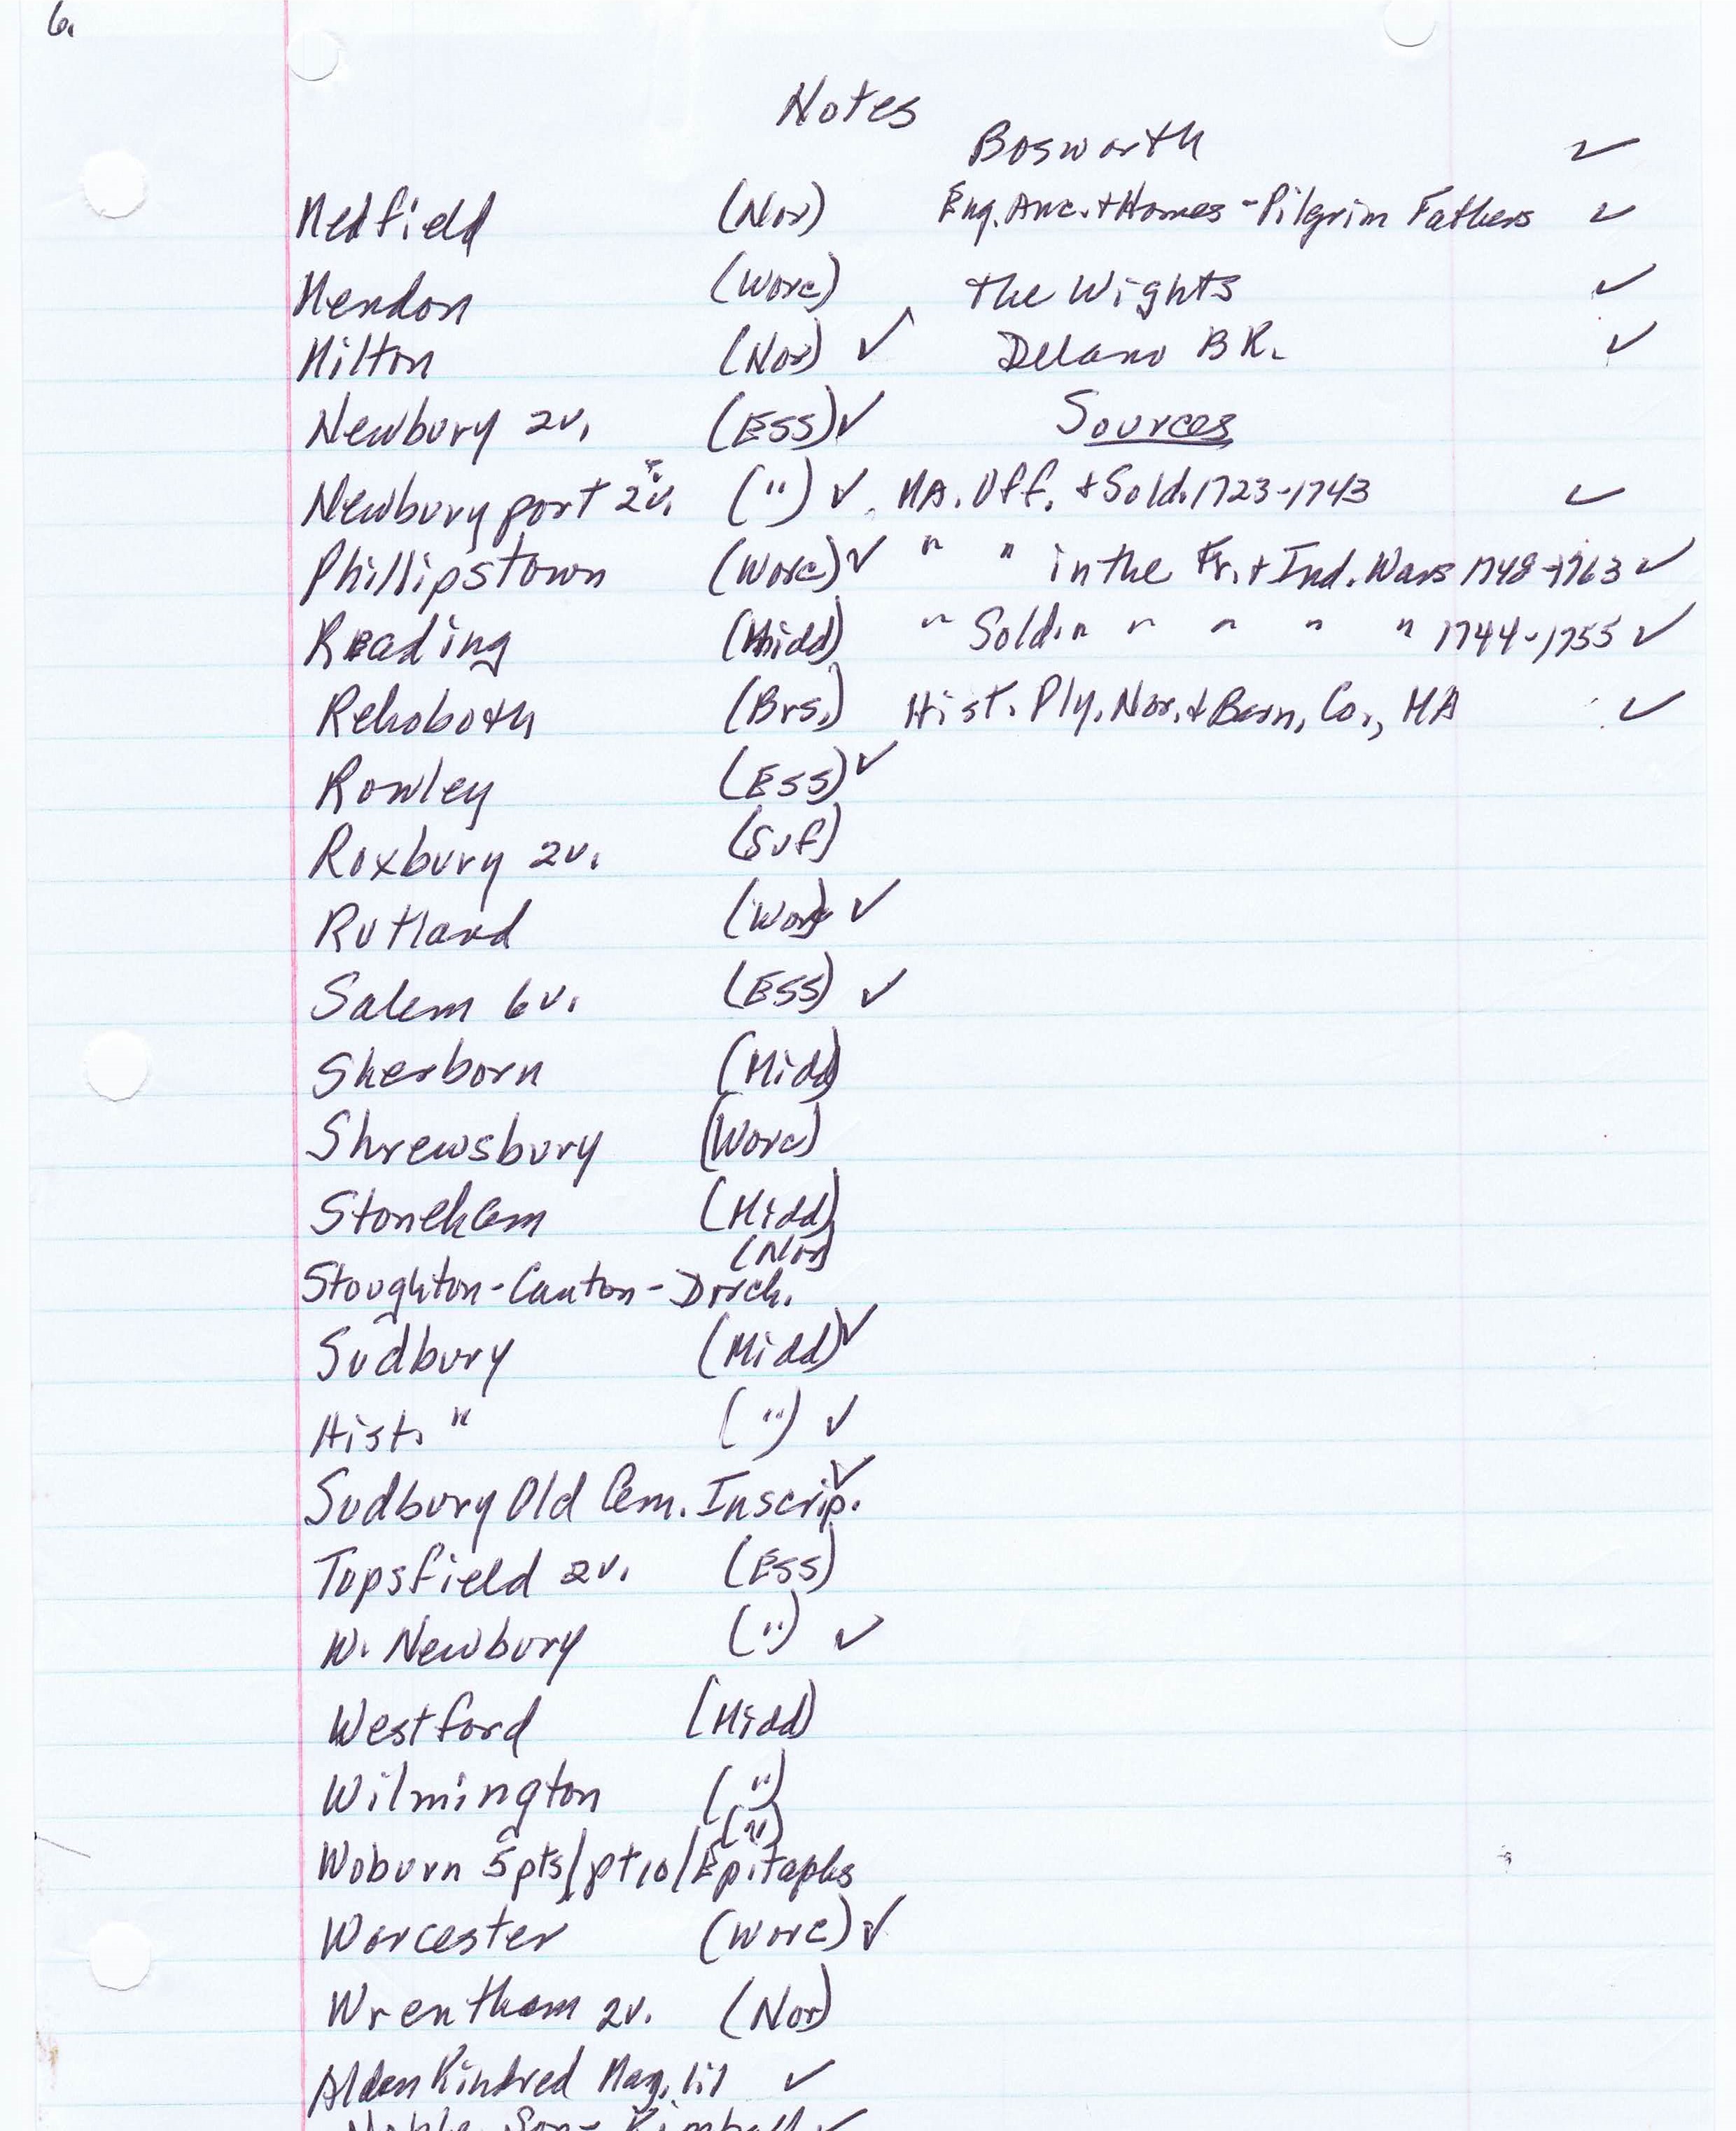 6.
Notes
Bosworth ✓
Medfield (Nor) Eng. Anc. + Homes - Pilgrim Fathers ✓
Mendon (Worc) The Wights ✓
Milton (Nor) ✓ Delano BR. ✓
Newbury 2v. (Ess) ✓ Sources
Newburyport 2v. (") ✓ MA. Off. + Sold. 1723-1743 ✓
Phillipstown (Worc) ✓ " " in the Fr. + Ind. Wars 1748-1763 ✓
Reading (Midd) " Sold. " " " " " 1744-1755 ✓
Rehoboth (Brs.) Hist. Ply, Nor, + Barn, Co., MA ✓
Rowley (Ess) ✓
Roxbury 2v. (Suf)
Rutland (Wor) ✓
Salem 6v. (Ess) ✓
Sherborn (Midd)
Shrewsbury (Worc)
Stoneham (Midd)
(Nor)
Stoughton-Canton-Dorch.
Sudbury (Midd) ✓
Hist. " (") ✓
Sudbury Old Cem. Inscrip. ✓
Topsfield 2v. (Ess)
W. Newbury (") ✓
Westford (Midd)
Wilmington (")
(")
Woburn 5pts/pt10/Epitaphs
Worcester (Worc) ✓
Wrentham 2v. (Nor)
Alden Kindred Mag. 1:1 ✓
Noble Sons Kimball ✓